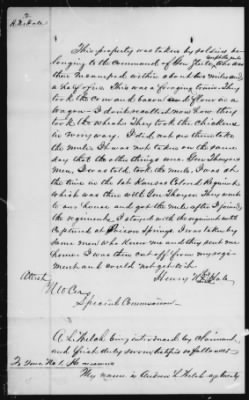 2
H. H. Hale
This property was taken by soldiers be
longing to the command of Gen. Thayer
then encamped within about two miles and
a half of us. This was a foraging train. They
took the corn and bacon and flour in a
wagon. I don't recollect now how they
took the wheat. They took the chickens
in every way. I did not see them take
the mule. It was not taken on the same
day that the other things were. Gen Thayers
men, I was told, took the mule. I was at
the time in the 1st Kansas Colored Regiment
which was then with Gen Thayer. They went
to our house and got the mule after I joined
the regiment. I stayed with the regiment until
captured at Poison Springs. I was taken by
some men who knew me and they sent me
home. I was then cut off from my regi
ment and would not get to it.
Henry Hale
Attest
Special Commissioner
A L Welch being introduced by claimant
and first duly sworn testifies as follows
To Inter. No 1. He answers
My name is Andrew L Welch